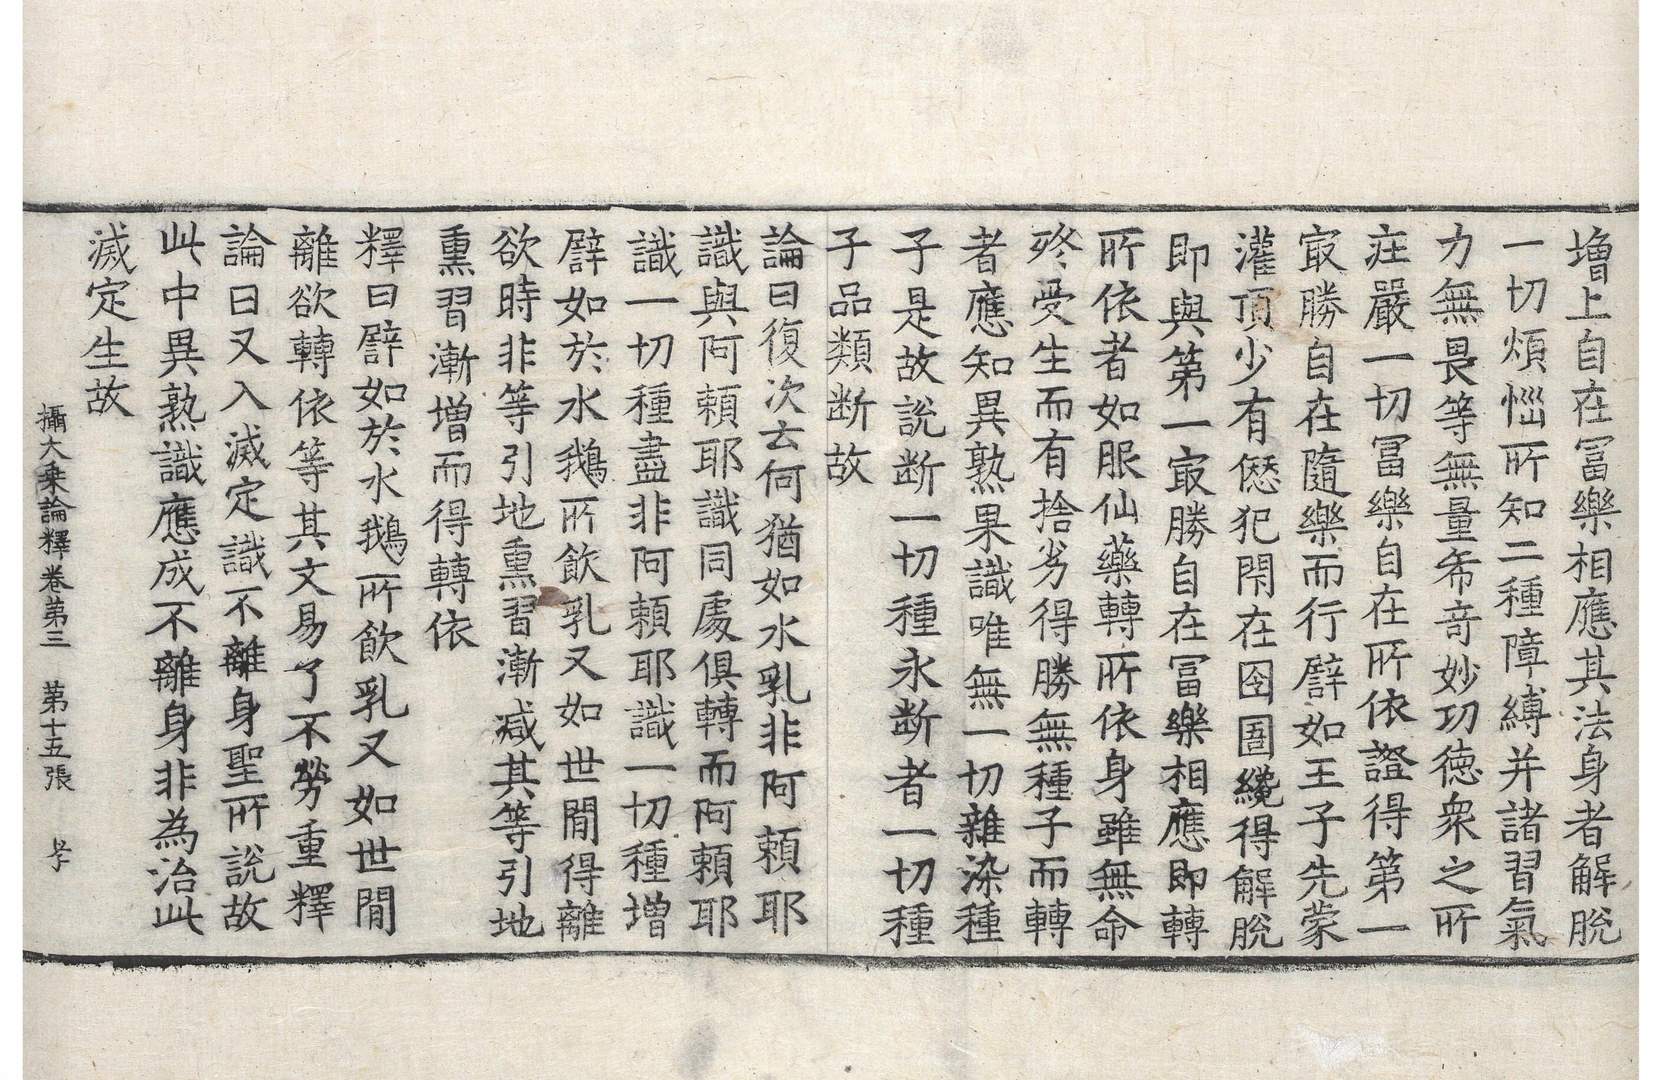 増上自在冨樂相應其法身者解脫
一切煩惱所知二種障縛并諸習氣
力無畏等無量希竒妙功德衆之所
莊嚴一切冨樂自在所依證得第一
㝡勝自在隨樂而行譬如王子先蒙
灌頂少有愆犯閇在囹圄纔得解脫
即與第一㝡勝自在冨樂相應即轉
所依者如服仙藥轉所依身雖無命
終受生而有捨劣得勝無種子而轉
者應知異熟果識唯無一切雜染種
子是故說断一切種永断者一切種
子品類断故
論曰復次云何猶如水乳非阿賴耶
識與阿賴耶識同處俱轉而阿賴耶
識一切種盡非阿賴耶識一切種增
譬如於水鵝所飲乳又如世間得離
欲時非等引地熏習漸减其等引地
熏習漸增而得轉依
釋曰譬如於水鵝所飲乳又如世間
離欲轉依等其文易了不勞重釋
論曰又入滅定識不離身聖所說故
此中異熟識應成不離身非為治此
滅定生故
攝大乘論釋卷第三 第十五張